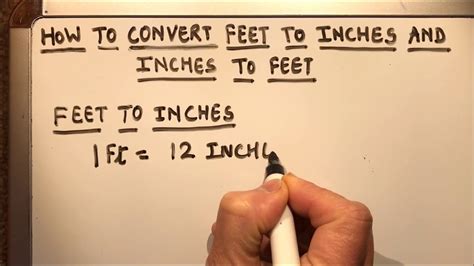 HOW TO CONVERT FEET TO INCHES AND
INCHES TO FEET
FEET TO INCHES
1Ft = 12 INCH